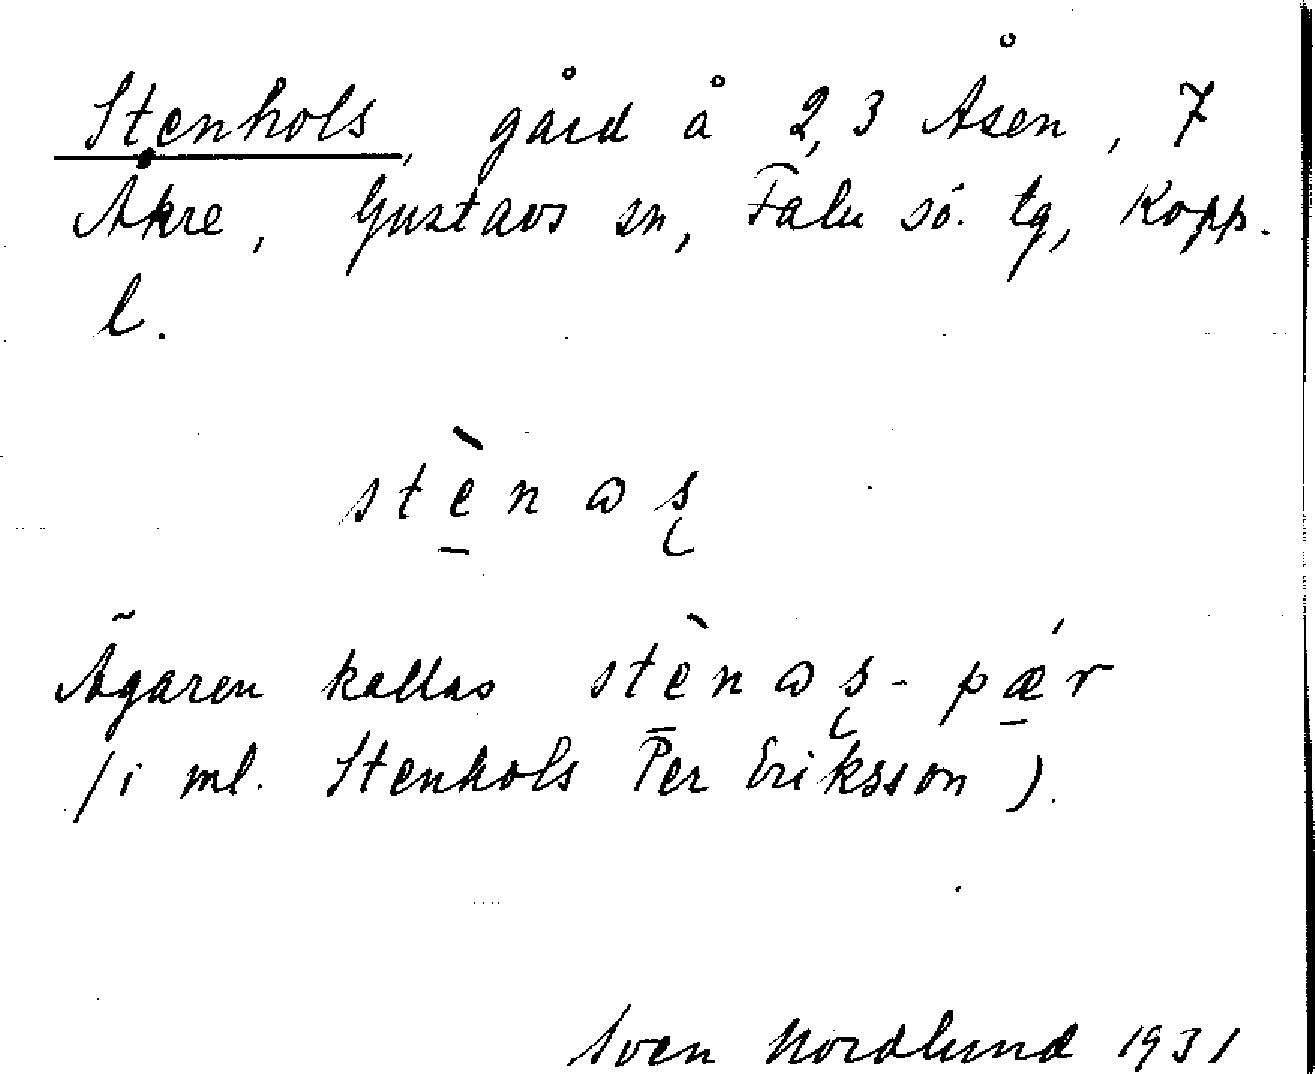 Stenhols, gård å 2,3 Åsen, 7
Åkre, Gustavs sn, Falu sö. tg, Kopp.
l.
stènɷʂ
Ägaren kallas stènɷʂ-pǽr
(i ml. Stenhols Per Eriksson).
Sven Nordlund 1931